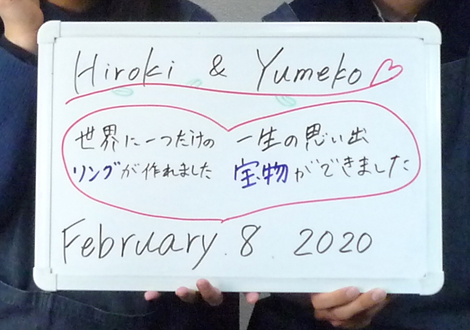 Hiroki & Yumeko
世界に一つだけの
リングが作れました
一生の思い出
宝物ができました
February. 8. 2020